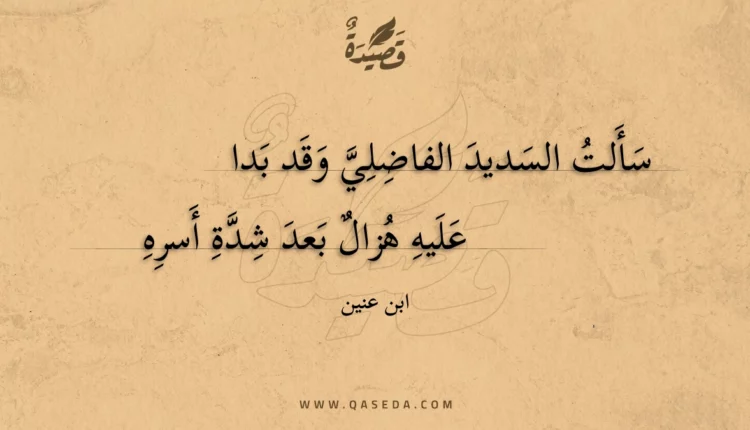 قَصِيدَةٌ
سَأَلتُ السَديدَ الفاضِلِيَّ وَقَد بَدا
عَلَيهِ هُزالٌ بَعدَ شِدَّةِ أَسرِهِ
ابن عنين
WWW.QASEDA.COM